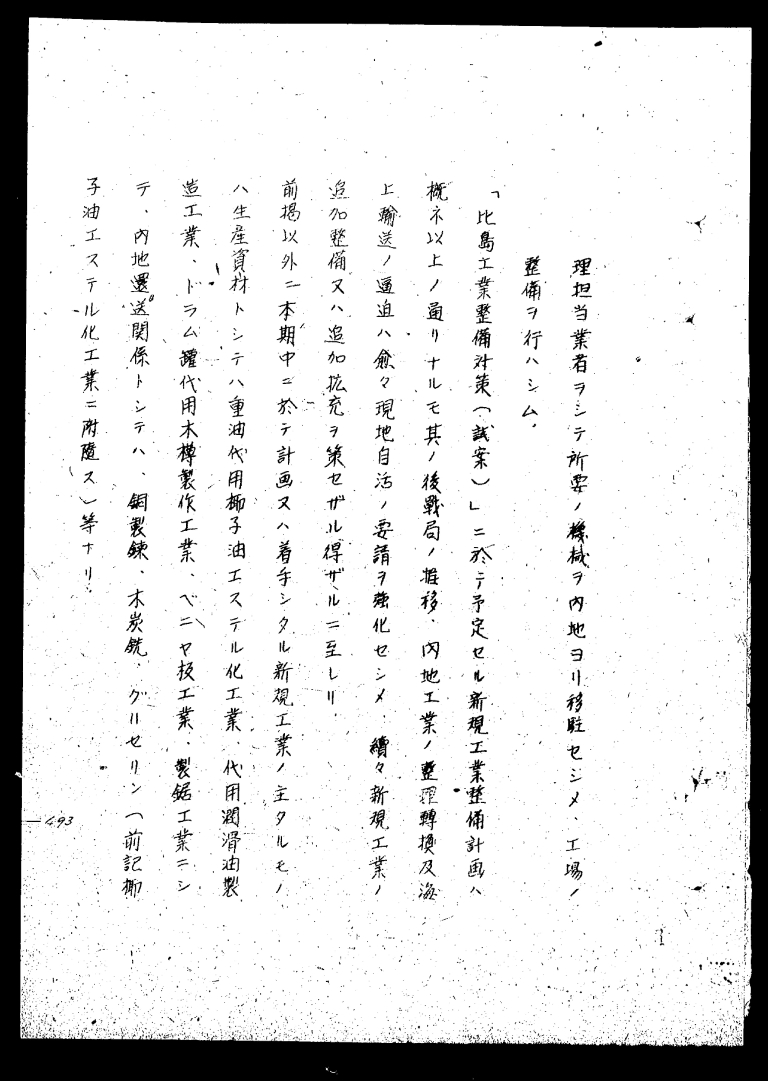 理担当業者ヲシテ所要ノ機械ヲ内地ヨリ移駐セシメ、工場ノ
整備ヲ行ハシム、
「比島工業整備対策(試案)」ニ於テ予定セル新規工業整備計画ハ
概ネ以上ノ通リナルモ其ノ後戰局ノ推移、内地工業ノ整理轉換及海
上輸送ノ逼迫ハ愈々現地自活ノ要請ヲ強化セシメ、續々新規工業ノ
追加整備又ハ追加拡充ヲ策セザル得ザルニ至レリ、
前掲以外ニ本期中ニ於テ計画又ハ着手シタル新規工業ノ主タルモノ
ハ生産資材トシテハ重油代用椰子油エステル化工業、代用潤滑油製
造工業、ドラム罐代用木樽製作工業、ベニヤ板工業、製鋸工業ニシ
テ、内地還送関係トシテハ、銅製錬、木炭銑、グリセリン(前記椰
子油エステル化工業ニ附随ス)等ナリ、
493